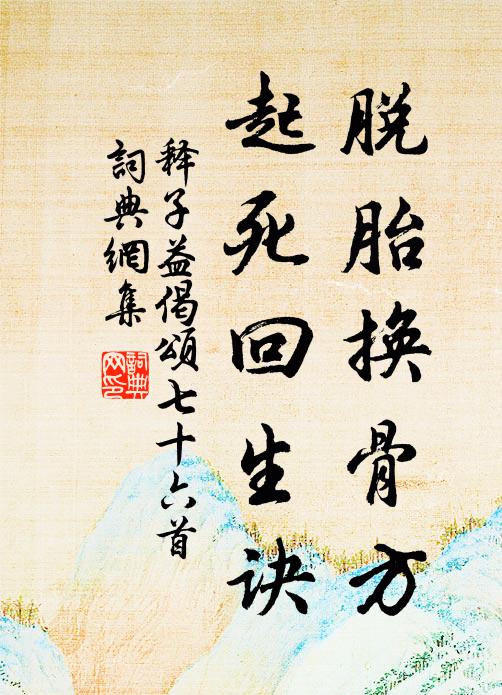 脱胎换骨方
起死回生诀
释子益偈頌七十六首
詞典網集
詞典網印